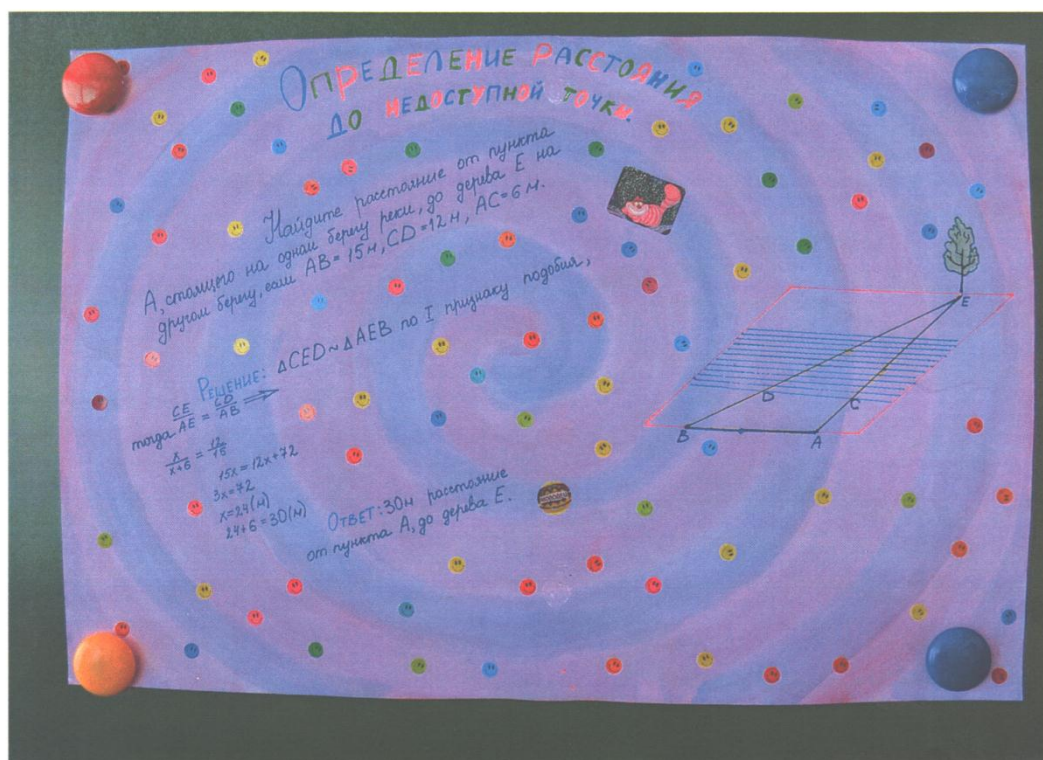 ОПРЕДЕЛЕНИЕ РАССТОЯНИЯ
ДО НЕДОСТУПНОЙ ТОЧКИ.
Найдите расстояние от пункта
А, стоящего на одном берегу реки, до дерева Е на
другом берегу, если АВ = 15 м, CD = 12 м, АС = 6 м.
РЕШЕНИЕ: ΔCED ~ ΔAEB по I признаку подобия,
тогда CE/AE = CD/AB ⟹
x/x+6 = 12/15
15x = 12x + 72
3x = 72
x = 24 (м)
24 + 6 = 30 (м)
ОТВЕТ: 30 м расстояние
от пункта А, до дерева Е.
E
D
C
B
A